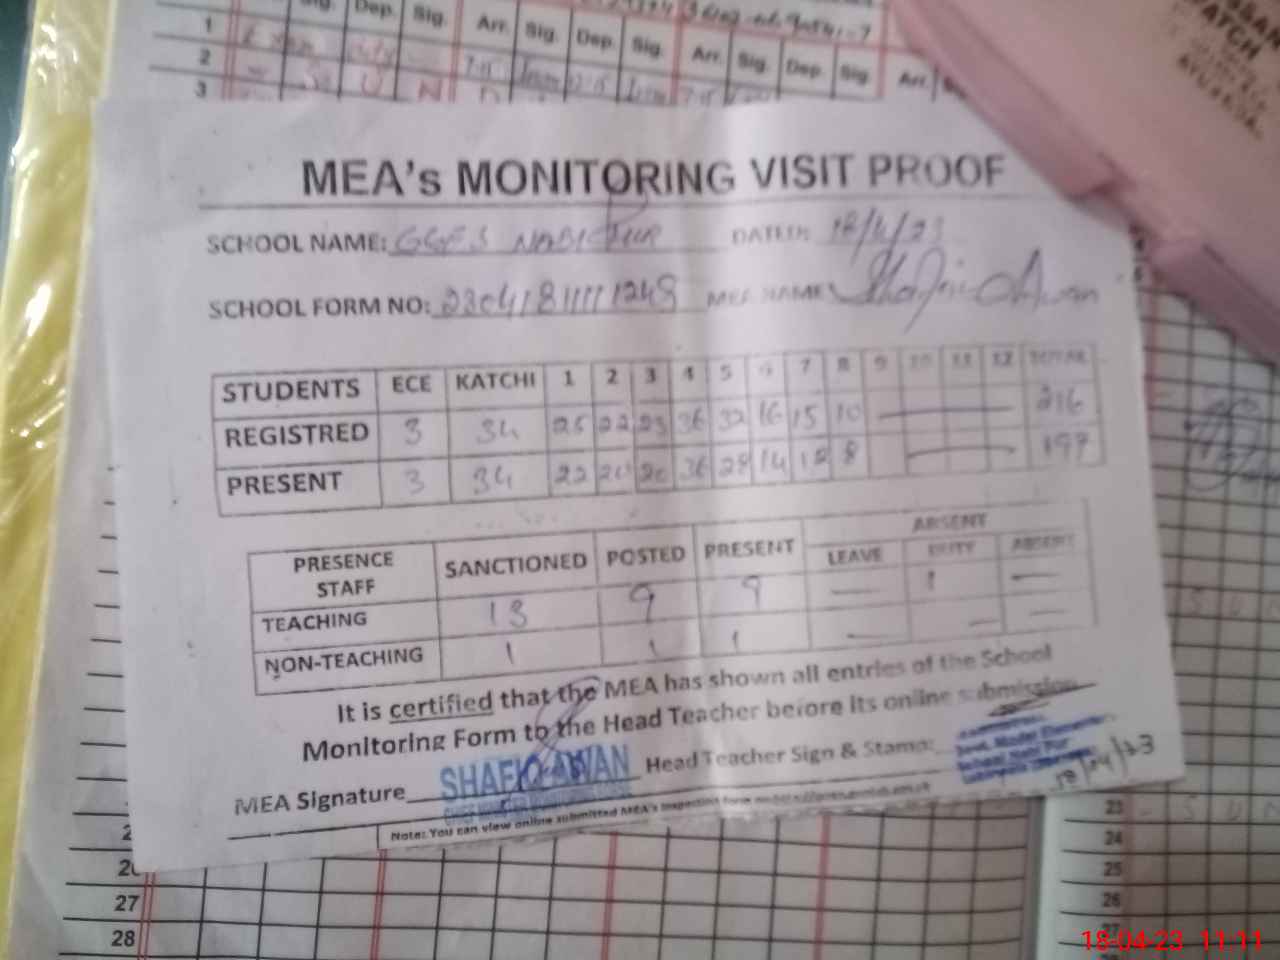 Sig. Dep. Sig. Arr. Sig. Dep. Sig. Arr. Sig. Dep. Sig. Arr.
1
2
3
MEA's MONITORING VISIT PROOF
SCHOOL NAME: GGES NABI PUR DATED: 18/4/23
SCHOOL FORM NO: MEA NAME: Shafiq Awan
STUDENTS ECE KATCHI 1 2 3 4 5 6 7 8 9 10 11 12 TOTAL
REGISTRED 3 34 25 22 23 36 32 16 15 10 216
PRESENT 3 34 22 20 20 36 28 14 12 8 197
ABSENT
PRESENCE STAFF SANCTIONED POSTED PRESENT LEAVE DUTY ABSENT
TEACHING 13 9 9 — —
NON-TEACHING 1 1 1 — — —
It is certified that the MEA has shown all entries of the School
Monitoring Form to the Head Teacher before its online submission
MEA Signature SHAFIQ AWAN Head Teacher Sign & Stamp:
18/04/23
Note: You can view online submitted MEA's inspection form on
23
24
25
26
27
26
27
28
18-04-23 11:11